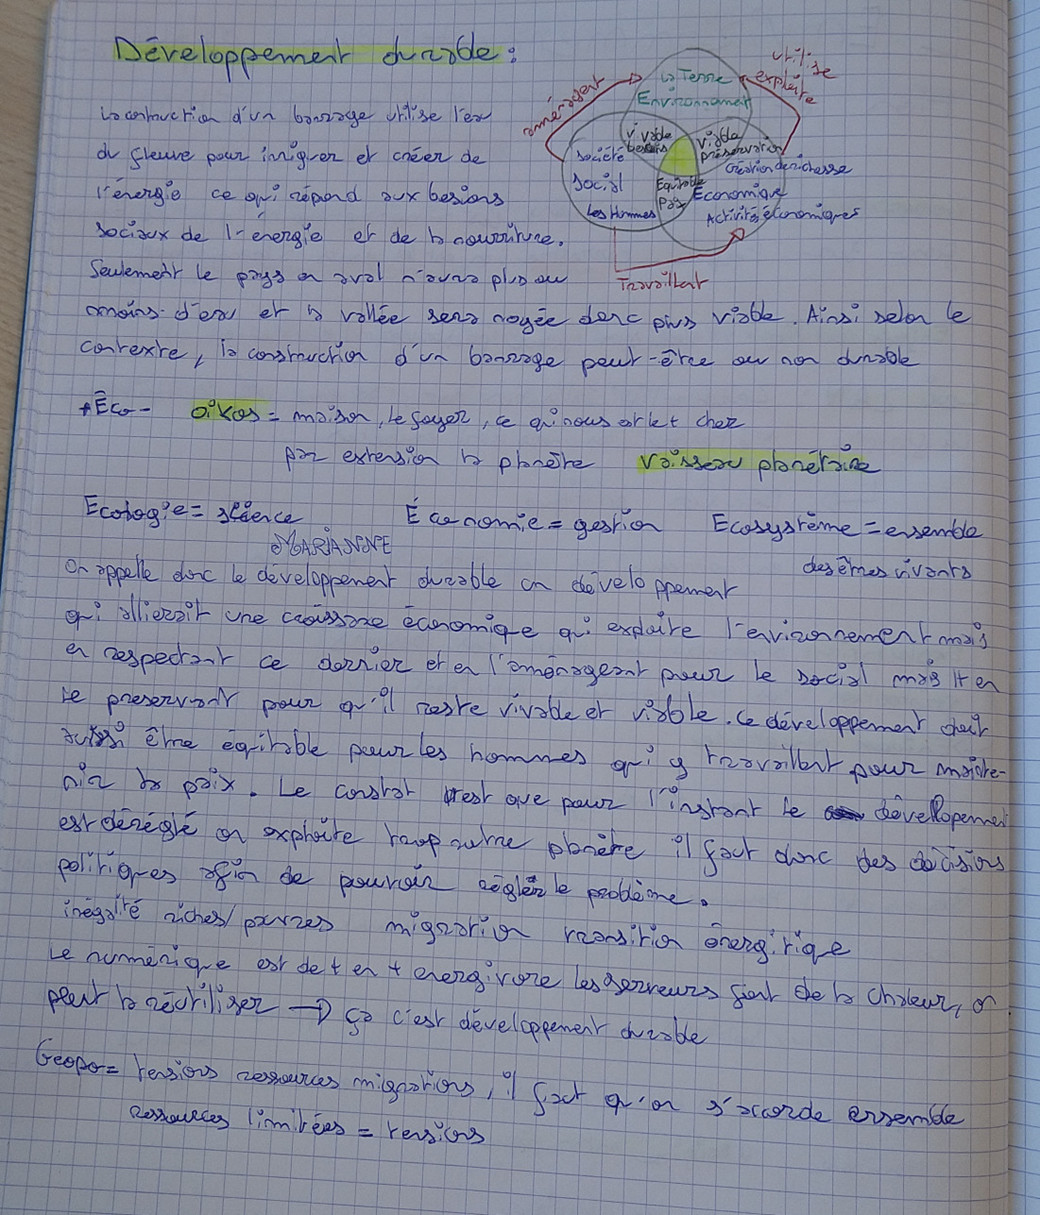 Développement durable :
La contruction d'un barrage utilise l'eau
du fleuve pour irriguer et créer de
l'énergie ce qui répond aux besions
sociaux de l'énergie et de la nourriture.
Seulement le pays en aval n'aura plus ou
moins d'eau et la vallée sera noyée donc plus viable. Ainsi selon le
contexte, la construction d'un barrage peut-être ou non durable
utilise
exploite
aménagent
La Terre
Environnement
vivable
besoins
viable
préservation
Société
Social
Les Hommes
Equitable
Paix
Création de richesse
Economique
Activités économiques
Travaillent
+ Éco- oikos = maison, le foyer, ce qui nous est chez
par extension la planète vaisseau planétaire
Ecologie = science Économie = gestion Ecosystème = ensemble
des êtres vivants
MARIANNE
On appelle donc le développement durable un développement
qui allierait une croissance économique qui exploite l'environnement mais
en respectant ce dernier et en l'aménageant pour le social mais en
le preservant pour qu'il reste vivable et viable. Ce développement doit
aussi être équitable pour les hommes qui y travaillent pour mainte-
nir la paix. Le constat est que pour l'instant le développement
est déréglé on exploite trop notre planète il faut donc des décisions
politiques afin de pouvoir régler le problème.
inégalité riches/pauvres migration transition énergitique
Le numérique est de + en + energivore les serveurs font de la chaleur, on
peut la réutiliser → ça c'est développement durable
Geopo = tensions ressources migrations, il faut qu'on s'accorde ensemble
ressources limitées = tensions